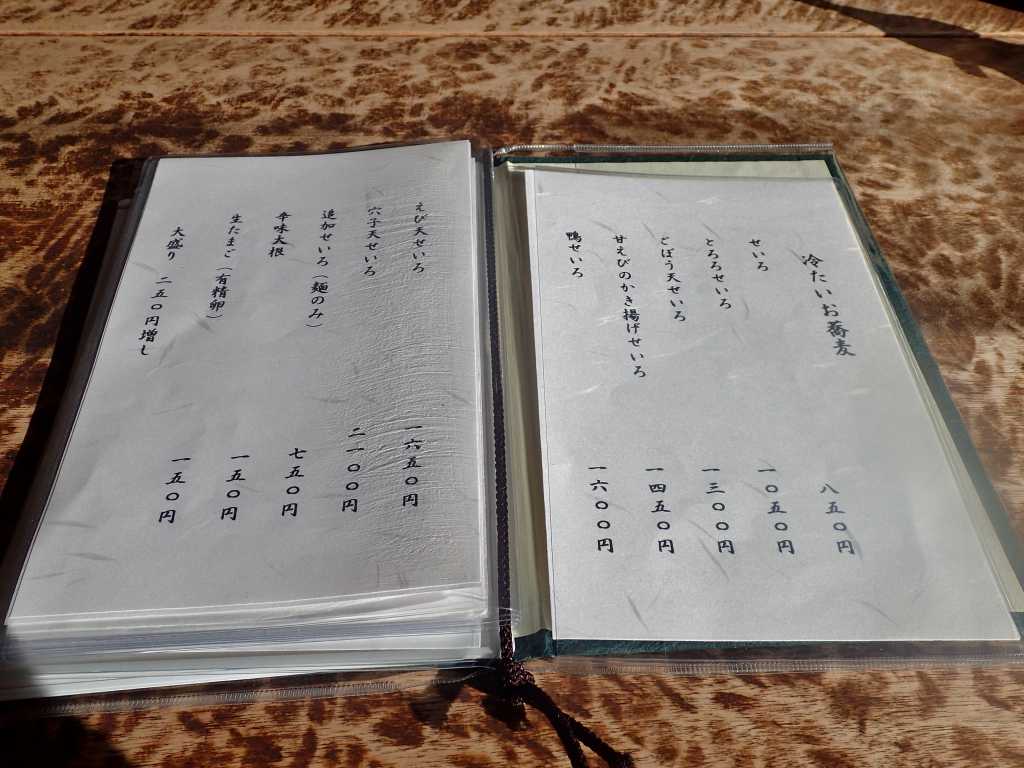 冷たいお蕎麦
せいろ 八五〇円
とろろせいろ 一〇五〇円
ごぼう天せいろ 一三〇〇円
甘えびのかき揚げせいろ 一四五〇円
鴨せいろ 一六〇〇円
えび天せいろ 一六五〇円
穴子天せいろ 二一〇〇円
追加せいろ（麺のみ） 七五〇円
辛味大根 一五〇円
生たまご（有精卵） 一五〇円
大盛り 二五〇円増し